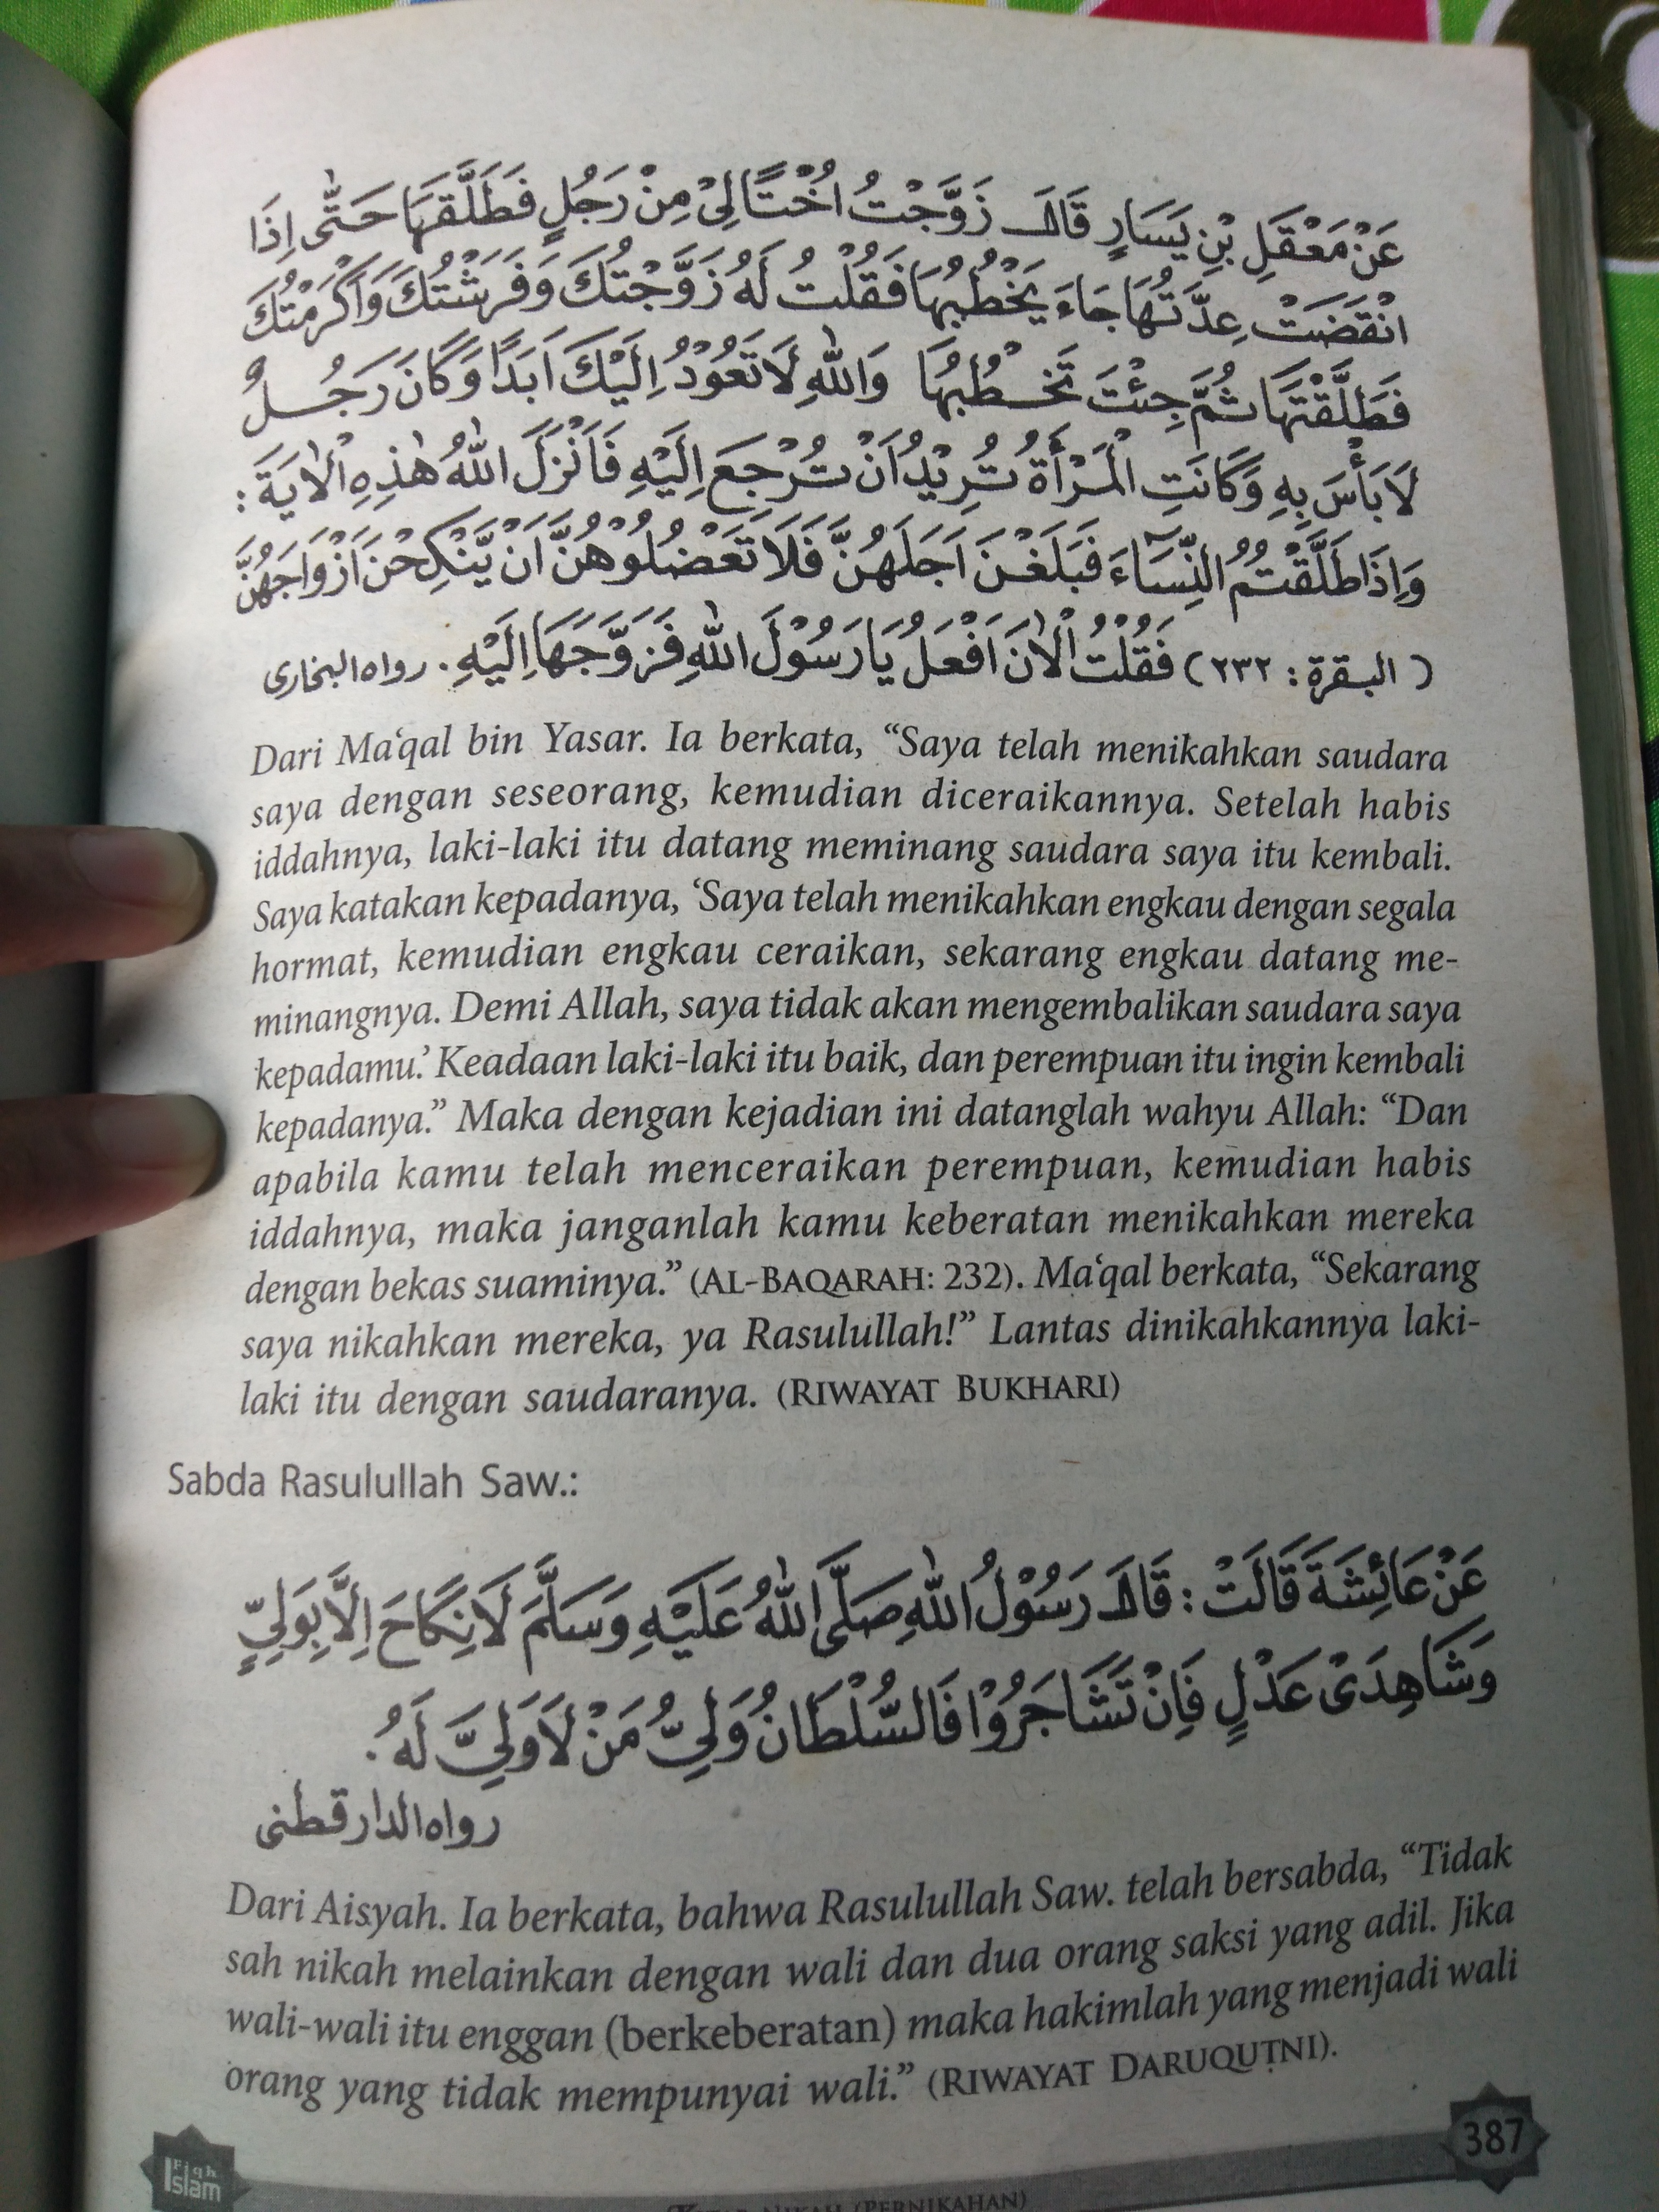 عَنْ مَعْقَلِ بْنِ يَسَارٍ قَالَ زَوَّجْتُ اُخْتًا لِيْ مِنْ رَجُلٍ فَطَلَّقَهَا حَتّٰى اِذَا
انْقَضَتْ عِدَّتُهَا جَاءَ يَخْطُبُهَا فَقُلْتُ لَهُ زَوَّجْتُكَ وَفَرَشْتُكَ وَاَكْرَمْتُكَ
فَطَلَّقْتَهَا ثُمَّ جِئْتَ تَخْطُبُهَا وَاللّٰهِ لَا تَعُوْدُ اِلَيْكَ اَبَدًا وَكَانَ رَجُلٌ
لَا بَأْسَ بِهِ وَكَانَتِ الْمَرْأَةُ تُرِيْدُ اَنْ تُرْجِعَ اِلَيْهِ فَاَنْزَلَ اللّٰهُ هٰذِهِ الْاٰيَةَ :
وَاِذَا طَلَّقْتُمُ النِّسَآءَ فَبَلَغْنَ اَجَلَهُنَّ فَلَا تَعْضُلُوْهُنَّ اَنْ يَّنْكِحْنَ اَزْوَاجَهُنَّ
( البقرة : ٢٣٢ ) فَقُلْتُ الْاٰنَ اَفْعَلُ يَا رَسُوْلَ اللّٰهِ فَزَوَّجَهَا اِلَيْهِ . رواه البخارى
Dari Ma‘qal bin Yasar. Ia berkata, “Saya telah menikahkan saudara
saya dengan seseorang, kemudian diceraikannya. Setelah habis
iddahnya, laki-laki itu datang meminang saudara saya itu kembali.
Saya katakan kepadanya, ‘Saya telah menikahkan engkau dengan segala
hormat, kemudian engkau ceraikan, sekarang engkau datang me-
minangnya. Demi Allah, saya tidak akan mengembalikan saudara saya
kepadamu.’ Keadaan laki-laki itu baik, dan perempuan itu ingin kembali
kepadanya.” Maka dengan kejadian ini datanglah wahyu Allah: “Dan
apabila kamu telah menceraikan perempuan, kemudian habis
iddahnya, maka janganlah kamu keberatan menikahkan mereka
dengan bekas suaminya.” (AL-BAQARAH: 232). Ma‘qal berkata, “Sekarang
saya nikahkan mereka, ya Rasulullah!” Lantas dinikahkannya laki-
laki itu dengan saudaranya. (RIWAYAT BUKHARI)
Sabda Rasulullah Saw.:
عَنْ عَائِشَةَ قَالَتْ : قَالَ رَسُوْلُ اللّٰهِ صَلَّى اللّٰهُ عَلَيْهِ وَسَلَّمَ لَا نِكَاحَ اِلَّا بِوَلِيٍّ
وَشَاهِدَىْ عَدْلٍ فَاِنْ تَشَاجَرُوْا فَالسُّلْطَانُ وَلِيُّ مَنْ لَا وَلِيَّ لَهُ .
رواه الدارقطنى
Dari Aisyah. Ia berkata, bahwa Rasulullah Saw. telah bersabda, “Tidak
sah nikah melainkan dengan wali dan dua orang saksi yang adil. Jika
wali-wali itu enggan (berkeberatan) maka hakimlah yang menjadi wali
orang yang tidak mempunyai wali.” (RIWAYAT DARUQUṬNI).
387
Fiqh
Islam
KITAB NIKAH (PERNIKAHAN)